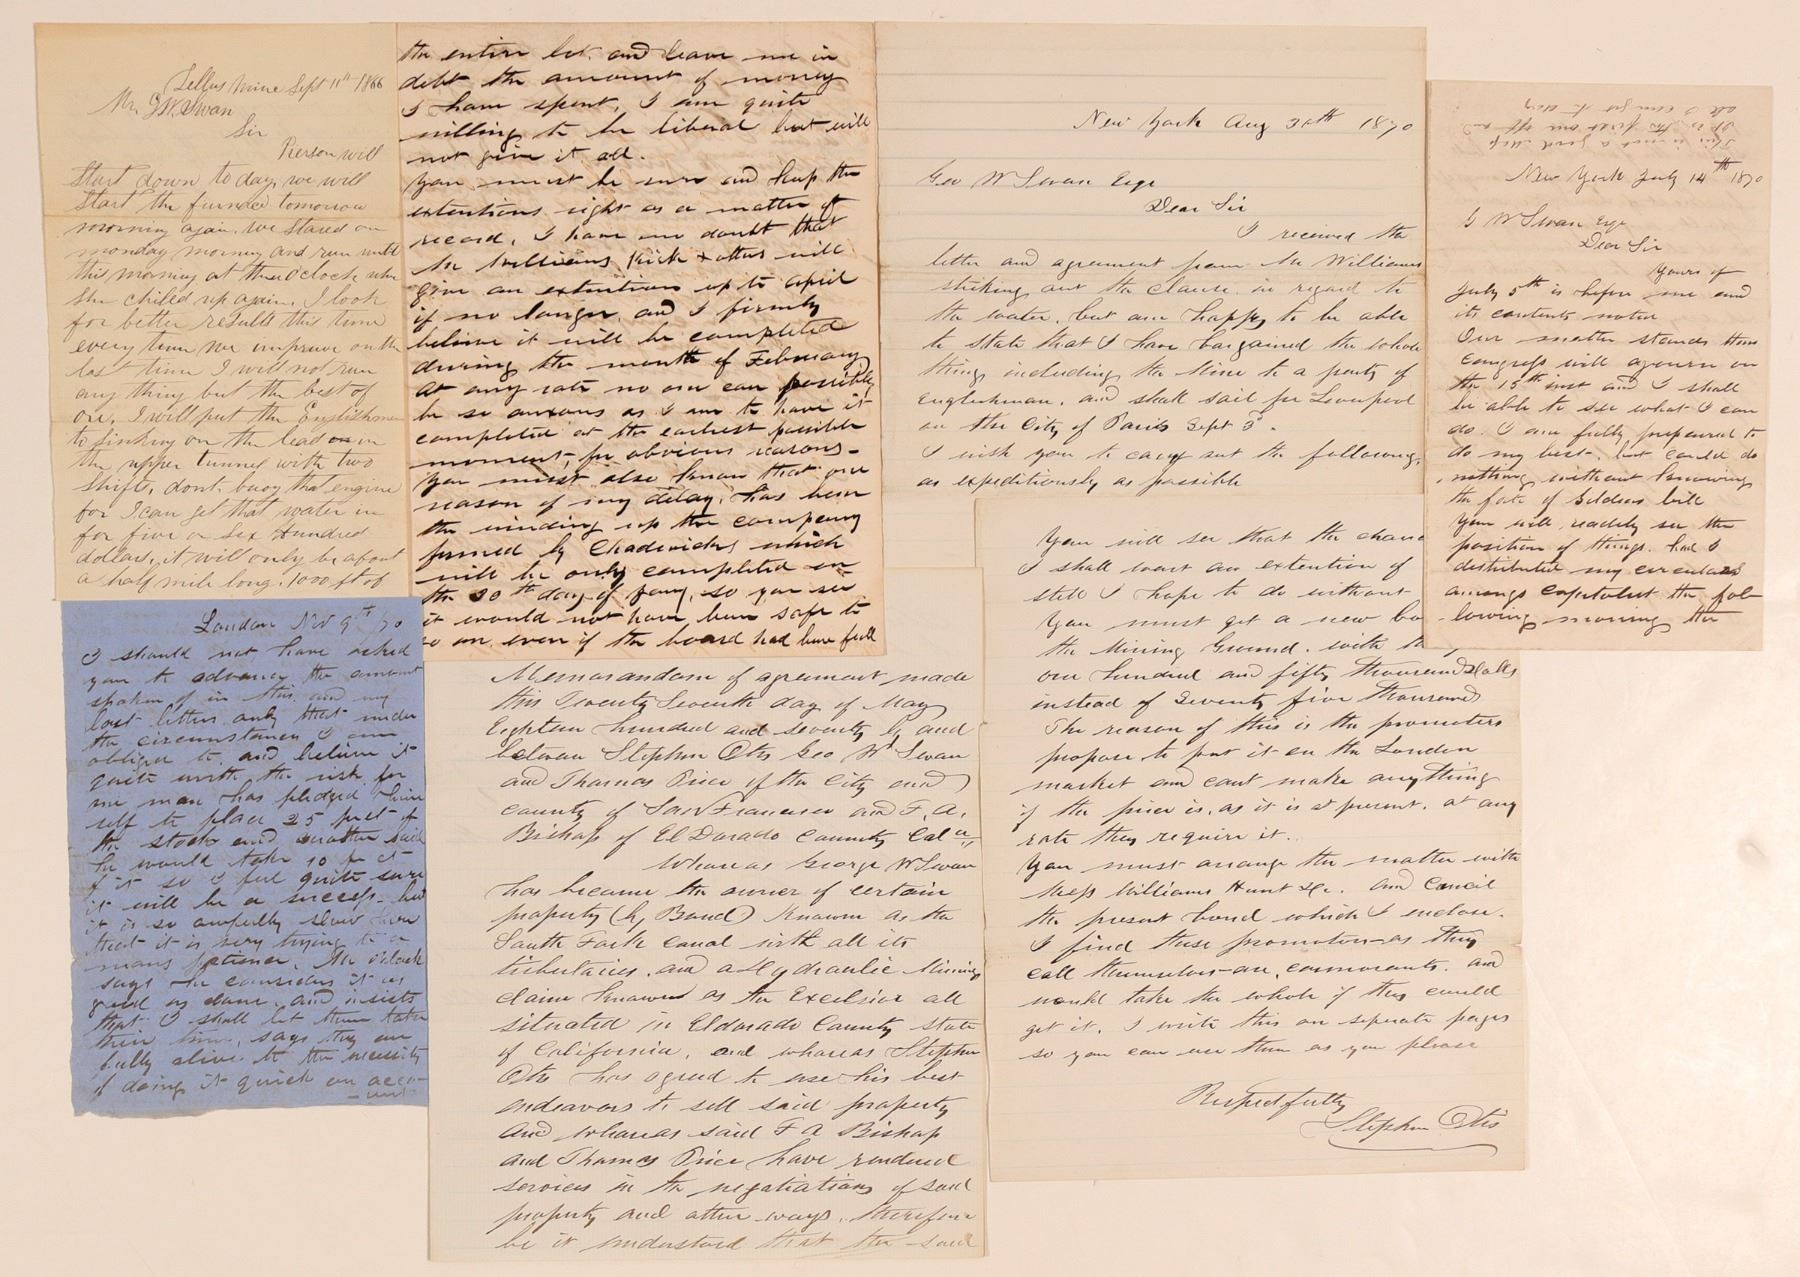 Tellus Mine Sept 11th 1866
Mr. G.W. Swan
Sir
Pierson will
Start down to day, we will
Start the furnace tomorrow
morning again. We Stared on
monday morning and run until
this morning at three O'clock when
She chiled up again. I look
for better results this time
every time we improve on the
last time I will not run
any thing but the best of
ore. I will put the Englishmen
to sinking on the lead on in
the upper tunnel with two
Shifts, dont buoy that engine
for I can get that water in
for five or Six Hundred
dollars, it will only be about
a half mile long. 1000 ft of
the entire lot and leave me in
debt the amount of money
I have spent, I am quite
willing to be liberal but will
not give it all.
You must be sure and keep the
extentions right as a matter of
record, I have no doubt that
Mr Williams, Kirk & others will
give an extention up to april
if no longer, and I firmly
believe it will be completed
during the month of February
at any rate no one can possibly
be so anxious as I am to have it
completed at the earliest possible
moment, for obvious reasons—
You must also know that one
reason of my delay, has been
the winding up the company
formed by Chadwick, which
will be only completed on
the 30th day of Jany, so you see
it would not have been safe to
go on even if the board had been full
London Nov 9th /70
I should not have asked
you to advance the amount
spoken of in this and my
last letter only that under
the circumstances I am
obliged to, and believe it
quite worth the risk for
one man has pledged him
self to place 25 pr ct of
the stock and another said
he would take 10 pr ct
of it so I feel quite sure
it will be a success— but
it is so awfully slow here
that it is very trying to a
mans patience.
says he considers it as
good as done, and insists
that I shall let them take
their time, says they are
fully alive to the necessity
of doing it quick on acco-
-unt
Memorandom of agreement made
this Twenty Seventh day of May
Eighteen hundred and seventy by and
between Stephen Otis Geo W Swan
and Thomas Price of the City and
county of San Francisco and F. A.
Bishop of El Dorado County Cala.
Whereas George W Swan
has became the owner of certain
property (by Bond) Known as the
South Fork Canal with all its
tributaries, and a Hydraulic Mining
claim known as the Excelsior all
situated in Eldorado County State
of California, and whereas Stephen
Otis has agreed to use his best
endeavors to sell said property
And whereas said F A Bishop
and Thomas Price have rendered
services in the negotiations of said
property and other ways, therefore
be it understood that the said
New York Aug 30th 1870
Geo W Swan Esqr
Dear Sir
I received the
letter and agreement from Mr Williams
striking out the clause in regard to
the water, but am happy to be able
to state that I have bargained the whole
thing including the Mine to a party of
Englishman, and shall sail for Liverpool
on the City of Paris Sept 3d.
I wish you to carry out the following,
as expeditiously as possible
You will see that the chance
I shall want an extention of
still I hope to do without
You must get a new bo
the Mining Ground, with the
one hundred and fifty thousand dolls
instead of Seventy five thousand
The reason of this is the promoters
propose to put it on the London
market and cant make anything
if the price is, as it is at present, at any
rate they require it.
You must arrange the matter with
Mess Williams Hunt &c. and Cancil
the present bond which I enclose.
I find these promoters—as they
call themselves—are, cormorants, and
would take the whole if they could
get it. I write this on seperate pages
so you can use them as you please
Respectfully
Stephen Otis
New York July 14th 1870
G W Swan Esqr
Dear Sir
Yours of
July 5th is before me and
its contents noted
Our matter stands thus
Congress will ajourn on
the 15th inst and I shall
be able to see what I can
do. I am fully prepared to
do my best, but could do
nothing without knowing
the fate of Seldens bill
You will readily see the
position of things. had I
distributed my circulars
amongs Capitalist the fol-
lowing morning the